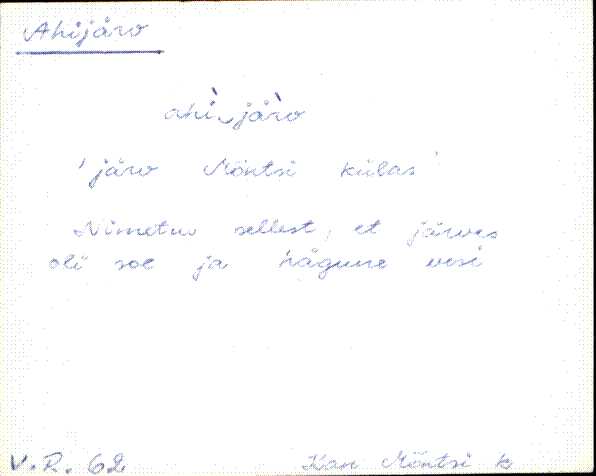 Ahijärv
ahì‿jä̀rv
'järv Möntsi külas'
Nimetus sellest, et järves
oli soe ja hägune vesi
V.R. 62 Kan Möntsi k